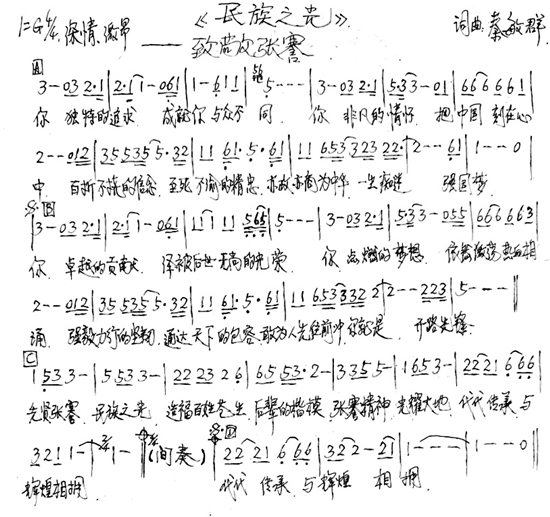 《民族之光》
1=G 4/4 深情、激昂 —— 致敬张骞 词曲:蔡敏群
A
3-032·1|2·11-061|1-611|5----|3-032·1|5·33-01|666661|
你 独特的追求 成就你与众不同. 你 非凡的情怀 把中国刻在心
2--012|355355·32|1161·5·61|116532322·|2--61|1--0|
中 百折不挠的信念 至死不渝的精忠 亦故 为中华一生 强国梦
B
3-032·1|2·11-061|1111565|5---|3-032·1|5·33-055|666663|
你 卓越的贡献 泽被后世无尚的光荣 你 点燃的梦想 依然 相
2--012|355355·32|1161·5·61|116533322|2--223|5---||
涌 强毅力行的坚韧 通达天下的包容 敢为人先 你就是 开路先锋
C
1533-|5533-|222326|6553·2-|3355-|1653-|2221666|
先贤张骞 民族之光 造福百姓苍生 后辈的楷模 张骞精神 光耀大地 代代传承与
3211-|1-(间奏) D 2221666|322-21|1---|1--0||
辉煌相拥 代代传承与辉煌 相拥